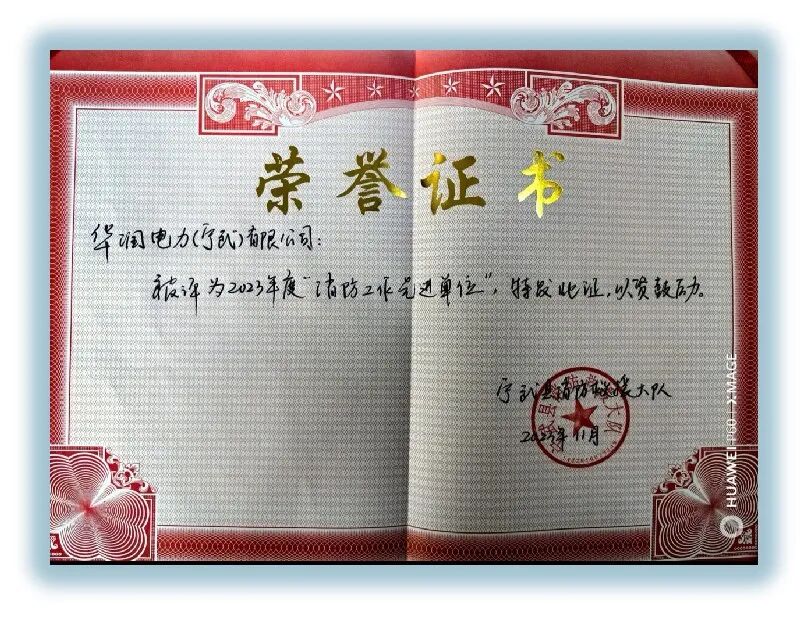 荣誉证书
华润电力(宁武)有限公司:
被评为2023年度"消防工作先进单位",特发此证,以资鼓励。
宁武县消防救援大队
2023年11月
HUAWEI P60 · XMAGE